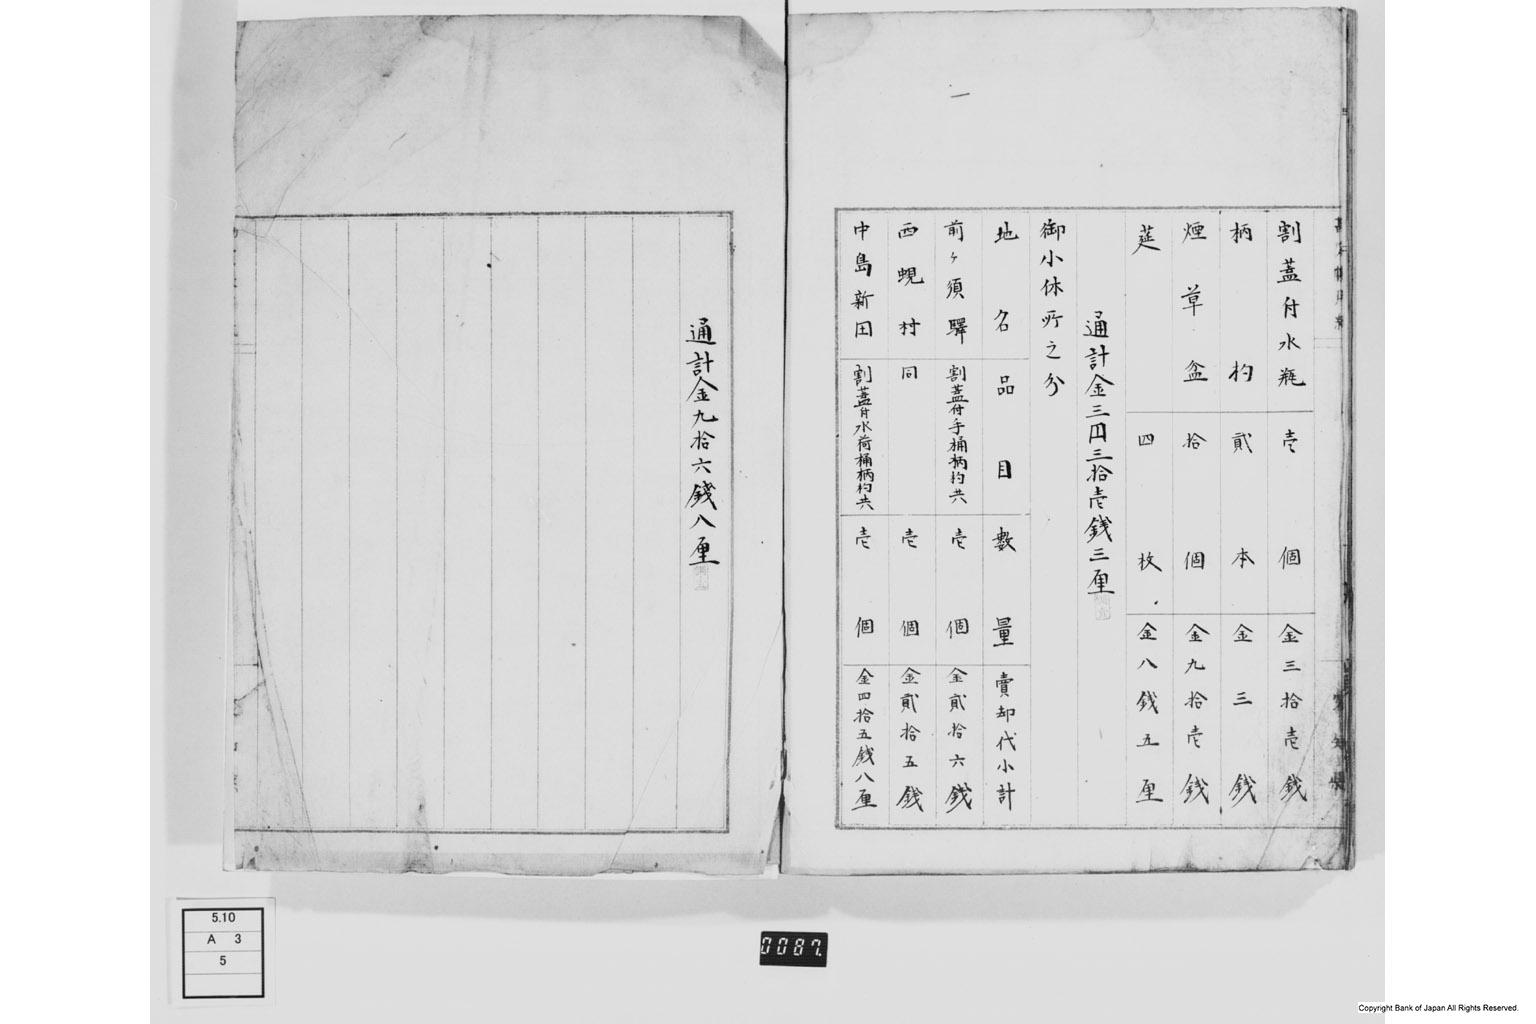 割蓋付水瓶 壱個 金三拾壱銭
柄杓 貮本 金三銭
煙草盆 拾個 金九拾壱銭
莚 四枚 金八銭五厘
通計金三円三拾壱銭三厘
御小休所之分
地名 品目 數量 賣却代小計
前ヶ須驛 割蓋付手桶柄杓共 壱個 金貮拾六銭
西蜆村 同 壱個 金貮拾五銭
中島新田 割蓋付水荷桶柄杓共 壱個 金四拾五銭八厘
通計金九拾六銭八厘
5.10
A 3
5
0087.
Copyright Bank of Japan All Rights Reserved.